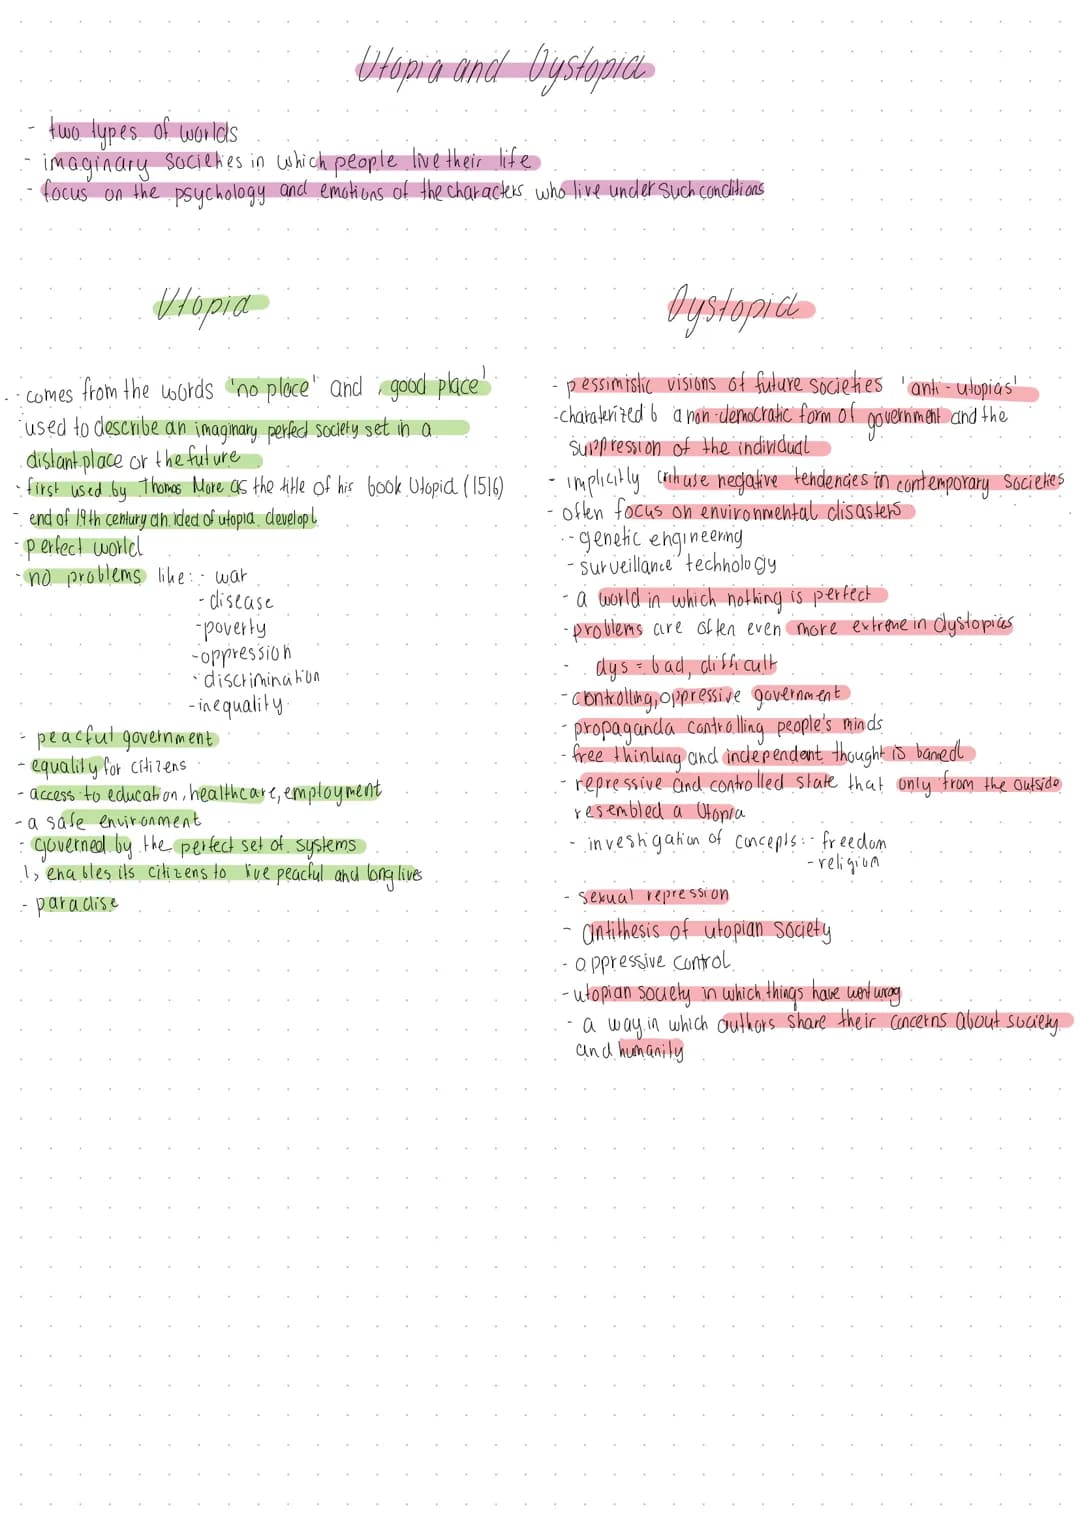 Utopia and Dystopia
- two types of worlds
- imaginary societies in which people live their life
- focus on the psychology and emotions of the characters who live under such conditions
Utopia
- comes from the words 'no place' and 'good place'
used to describe an imaginary perfect society set in a
distant place or the future
- first used by Thomas More as the title of his book Utopia (1516)
- end of 19th century an idea of utopia developt
- perfect world
- no problems like: - war
- disease
- poverty
- oppression
- discrimination
- inequality
- peacful government
- equality for citizens
- access to education, healthcare, employment
- a safe environment
- governed by the perfect set of systems
↳ enables its citizens to live peacful and long lives
- paradise
Dystopia
- pessimistic visions of future societies 'anti-utopias'
- charaterized b a non-democratic form of government and the
suppression of the individual
- implicitly negative tendencies in contemporary societies
- often focus on environmental disasters
- genetic engineering
- surveillance technology
- a world in which nothing is perfect
- problems are often even more extreme in dystopias
- dys = bad, difficult
- controlling, oppressive government
- propaganda controlling people's minds
- free thinking and independent thought is baned
- repressive and controlled state that only from the outside
resembled a Utopia
- investigation of concepts: - freedom
- religion
- sexual repression
- antithesis of utopian society
- oppressive control
- utopian society in which things have went wrog
- a way in which authors share their concerns about society
and humanity